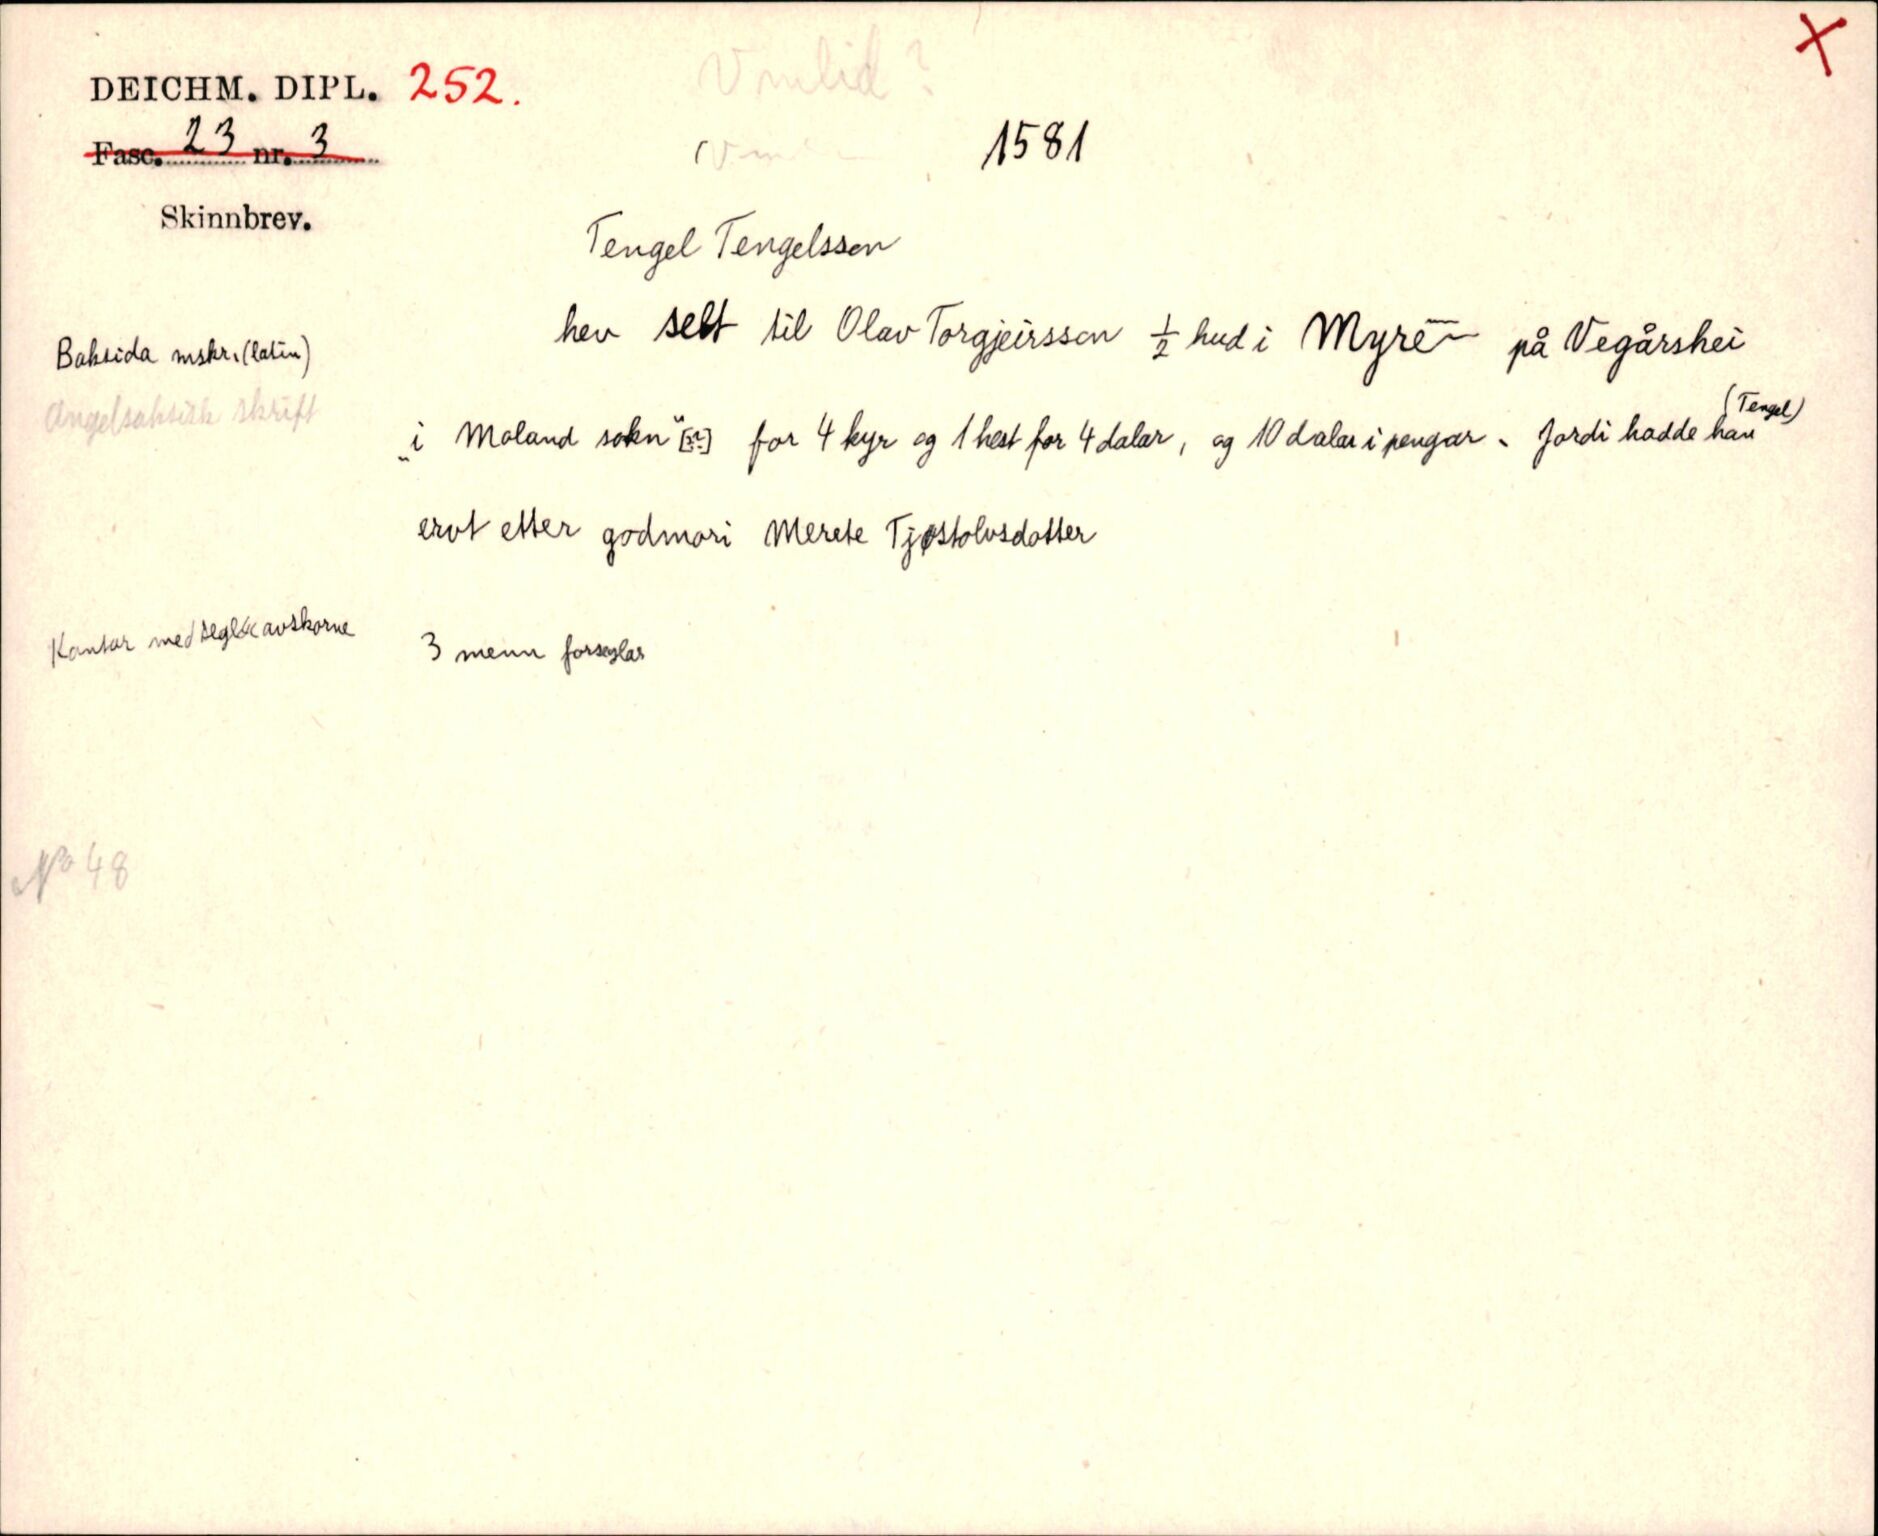 DEICHM. DIPL. 252.
X
Vmlid?
Fasc. 23 nr. 3
1581
Skinnbrev.
Tengel Tengelsson
hev selt til Olav Torgjeirsson 1/2 hud i Myre på Vegårshei
Baksida mskr. (latin)
Angelsaksisk skrift
(Tengel)
„i Moland sokn" [::] for 4 kyr og 1 hest for 4 dalar, og 10 dalar i pengar. Jordi hadde han
ervt etter godmori Merete Tjøstolvsdotter
Kantar med segl avskorne
3 menn forseglar
No 48